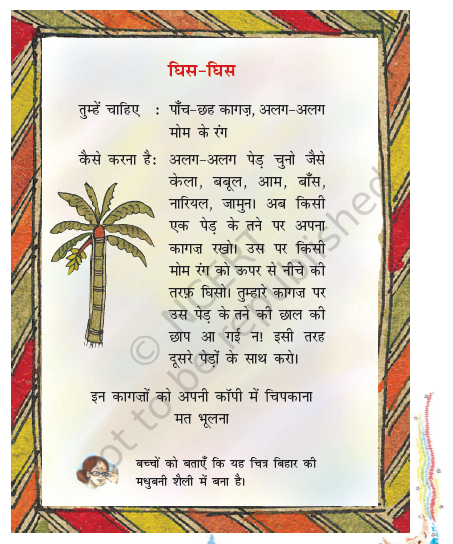 घिस-घिस
तुम्हें चाहिए : पाँच-छह कागज़, अलग-अलग
मोम के रंग
कैसे करना है: अलग-अलग पेड़ चुनो जैसे
केला, बबूल, आम, बाँस,
नारियल, जामुन। अब किसी
एक पेड़ के तने पर अपना
कागज रखो। उस पर किसी
मोम रंग को ऊपर से नीचे की
तरफ़ घिसो। तुम्हारे कागज पर
उस पेड़ के तने की छाल की
छाप आ गई न! इसी तरह
दूसरे पेड़ों के साथ करो।
इन कागज़ों को अपनी कॉपी में चिपकाना
मत भूलना
बच्चों को बताएँ कि यह चित्र बिहार की
मधुबनी शैली में बना है।
© NCERT
not to be republished